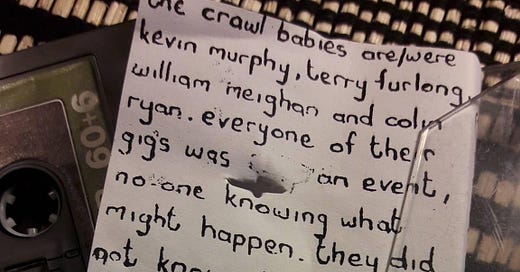 the crawl babies are/were
kevin murphy, terry furlong,
william meighan and colin
ryan. everyone of their
gigs was an event,
no-one knowing what
might happen. they did
not
60+6